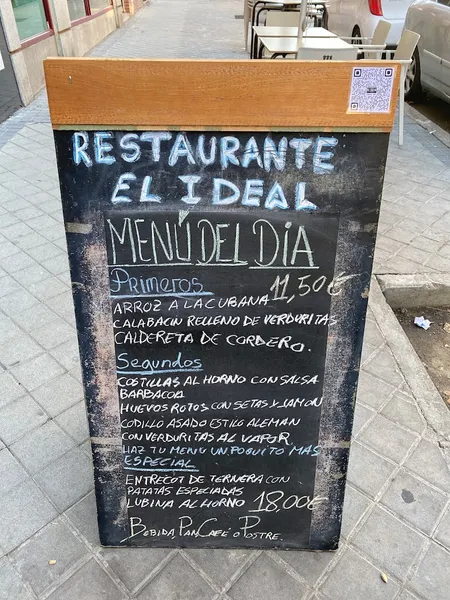 RESTAURANTE
EL IDEAL
MENÚ DEL DÍA
PRIMEROS 11,50€
ARROZ A LA CUBANA
CALABACIN RELLENO DE VERDURITAS
CALDERETA DE CORDERO.
SEGUNDOS
COSTILLAS AL HORNO CON SALSA
BARBACOA
HUEVOS ROTOS CON SETAS Y JAMON
CODILLO ASADO ESTILO ALEMAN
CON VERDURITAS AL VAPOR.
HAZ TU MENU UN POQUITO MAS
ESPECIAL
ENTRECOT DE TERNERA CON
PATATAS ESPECIADAS
LUBINA AL HORNO 18,00€
BEBIDA, PAN CAFÉ O POSTRE.